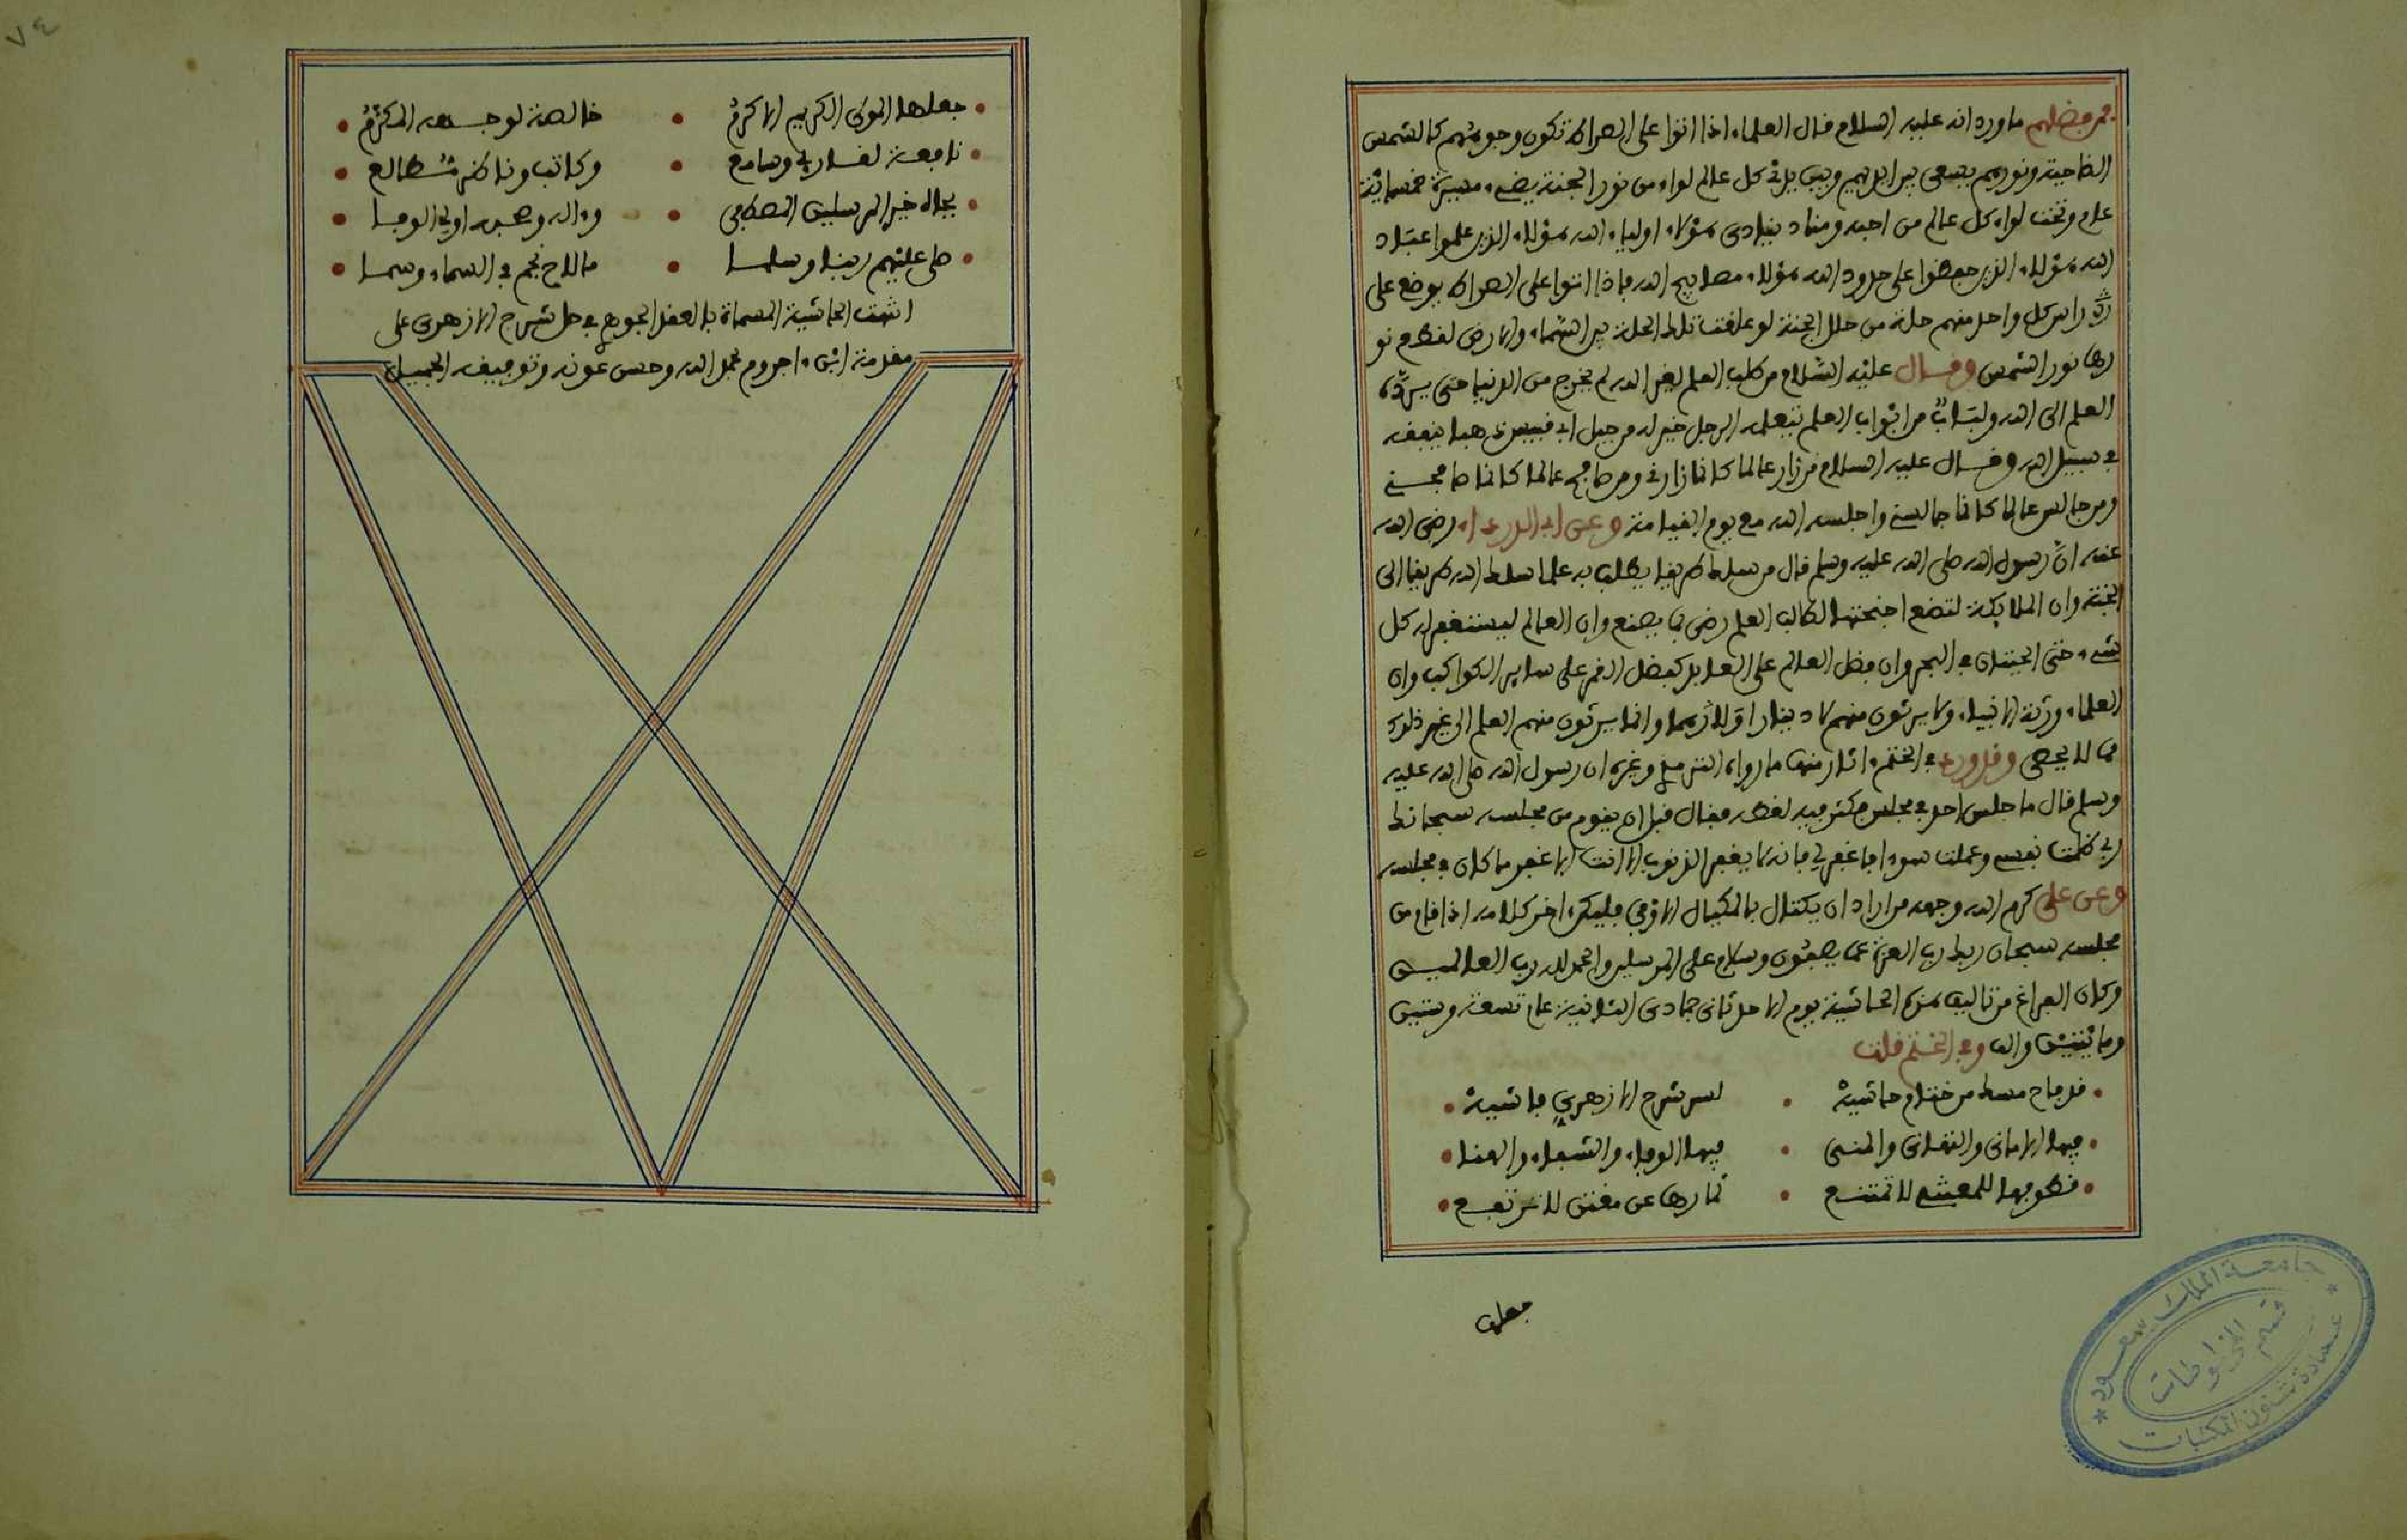 فمن فضلهم ما ورد انه عليه السلام قال العلماء اذا اتوا على الصراط تكون وجوههم كالشمس
الضاحية ونورهم يسعى بين ايديهم وبيد كل عالم لواء من نور الجنة يضيء مسيرة خمسمائة
عام وتحت لواء كل عالم من احبه ومناد ينادي هؤلاء اولياء الله هؤلاء الذين علموا عباد
الله هؤلاء الذين حفظوا على حدود الله هؤلاء مصابيح الله فاذا اتوا على الصراط يوضع على
راس كل واحد منهم حلة من حلل الجنة لو علقت تلك الحلة بين السماء والارض لغطى نو
رها نور الشمس وقال عليه السلام من طلب العلم لغير الله لم يخرج من الدنيا حتى يرده
العلم الى الله ولباب من ابواب العلم يتعلمه الرجل خير له من جبل ابي قبيس ذهبا ينفقه
في سبيل الله وقال عليه السلام من زار عالما كانما زارني ومن صافح عالما كانما صافحني
ومن جالس عالما كانما جالسني واجلسه الله مع يوم القيامة وعن ابي الدرداء رضي الله
عنه ان رسول الله صلى الله عليه وسلم قال من سلك طريقا يطلب به علما سلك الله طريقا الى
الجنة وان الملايكة لتضع اجنحتها لطالب العلم رضى بما يصنع وان العالم ليستغفر له كل
شيء حتى الحيتان في البحر وان فضل العالم على العابد كفضل القمر على ساير الكواكب وان
العلماء ورثة الانبياء ولا يرثون منهم لا دينارا ولا درهما وانما يرثون منهم العلم الى غير ذلك
مما لا يحصى وقد ورد في الختم اثار منها ما رواه الترمذي وغيره ان رسول الله صلى الله عليه
وسلم قال ما جلس احد في مجلس فكثر فيه لغطه فقال قبل ان يقوم من مجلسه سبحانك
ربي ظلمت نفسي وعملت سوءا فاغفر لي فانه لا يغفر الذنوب الا انت الا غفر ما كان في مجلسه
وعن علي كرم الله وجهه من اراد ان يكتال بالمكيال الاوفى فليكن اخر كلامه اذا قام من
مجلسه سبحان ربك رب العزة عما يصفون وسلام على المرسلين والحمد لله رب العالمين
وكان الفراغ من تاليف هذه الحاشية يوم الاحد ثاني جمادى الثانية عام تسعة وستين
ومائتين والف وفي الختم قلت
قد فاح مسك من ختام حاشية • لسر شرح الازهري فاشية
فيها الاماني والتهاني والمنى • فيها الوفاء والشفاء والهنا
قطوفها للمعتني لا تمتنع • ثمارها عن مقتن لا ترتفع
جعلها
٧٤
جعلها المولى الكريم الاكرم • خالصة لوجهه المكرم
نافعة لقارئ وسامع • وكاتب وناظر مطالع
بجاه خير المرسلين المصطفى • وءاله وصحبه اولي الوفا
صلى عليهم ربنا وسلما • ما لاح نجم في السماء وسما
انتهت الحاشية المسماة بالعقد الجوهري في حل شرح الازهري على
مقدمة ابن ءاجروم بحمد الله وحسن عونه وتوفيقه الجميل
جامعة الملك سعود
قسم المخطوطات
عمادة شئون المكتبات